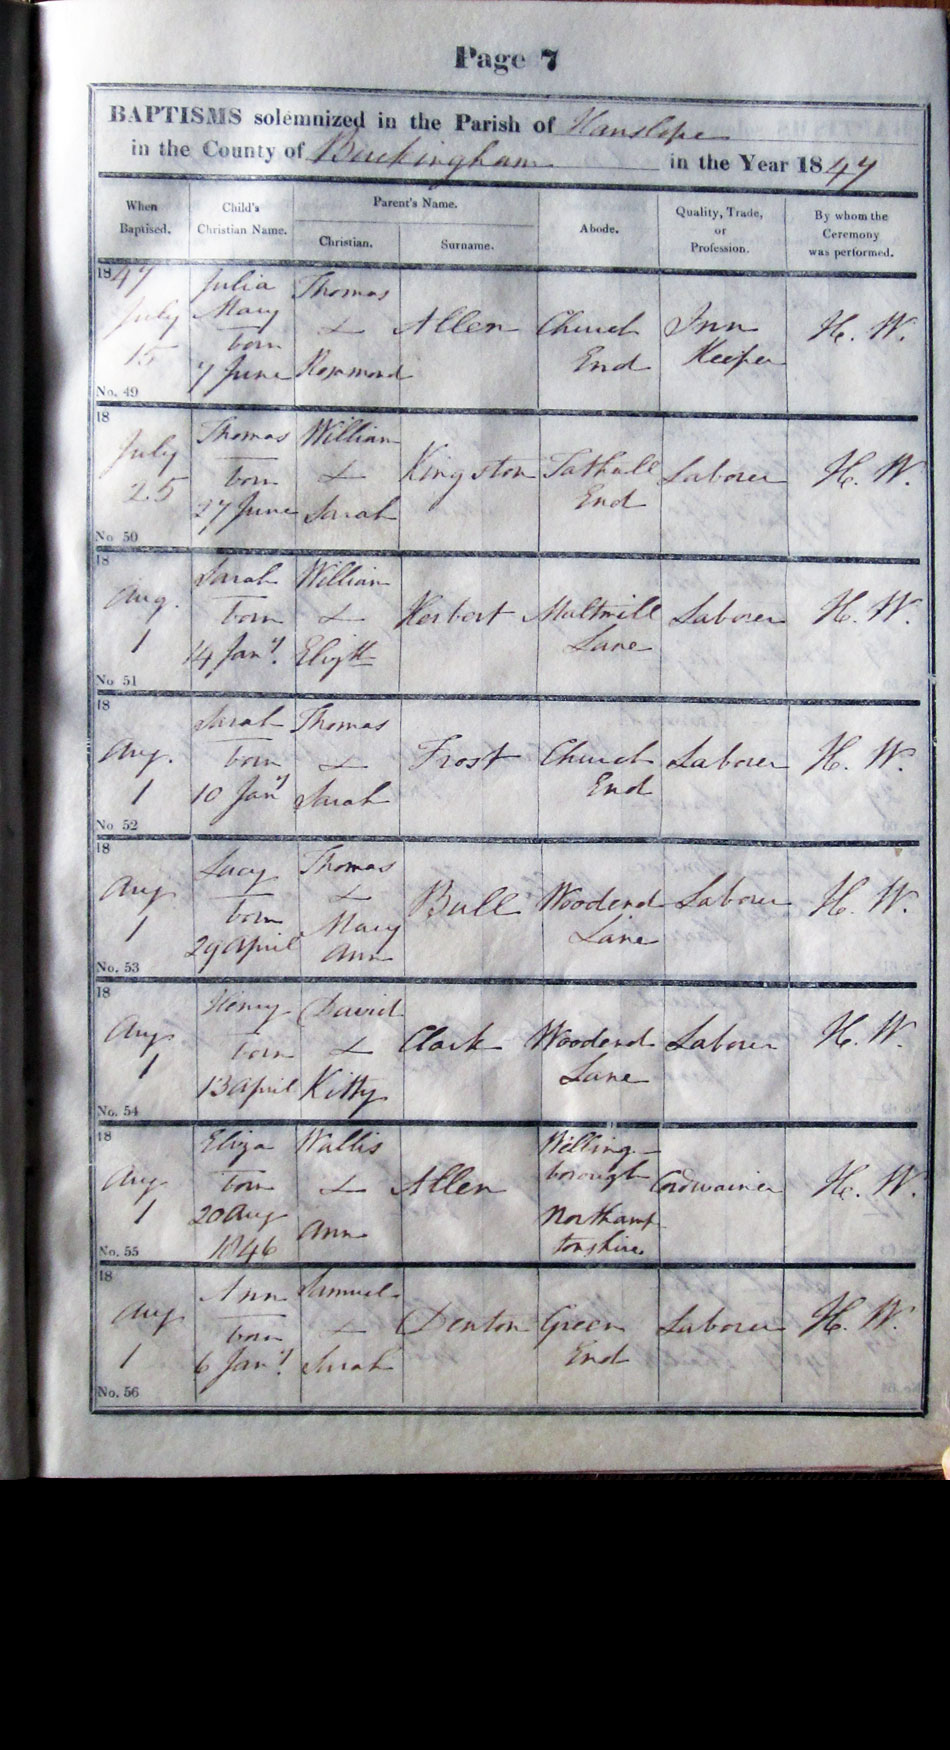 Page 7
BAPTISMS solemnized in the Parish of Hanslope
in the County of Buckingham in the Year 1847
When Baptised.
Child's Christian Name.
Parent's Name.
Christian.
Surname.
Abode.
Quality, Trade, or Profession.
By whom the Ceremony was performed.
1847
July
15
No. 49
Julia
Mary
born
7 June
Thomas
&
Rosamond
Allen
Church
End
Inn
Keeper
H. W.
18
July
25
No 50
Thomas
born
27 June
William
&
Sarah
Kingston
Tathall
End
Laborer
H. W.
18
Aug.
1
No 51
Sarah
born
14 Jany.
William
&
Elizth
Herbert
Maltmill
Lane
Laborer
H. W.
18
Aug.
1
No 52
Sarah
born
10 Jany
Thomas
&
Sarah
Frost
Church
End
Laborer
H. W.
18
Aug
1
No. 53
Lucy
born
29 April
Thomas
&
Mary
Ann
Bull
Woodend
Lane
Laborer
H. W.
18
Aug
1
No. 54
Henry
born
13 April
David
&
Kitty
Clark
Woodend
Lane
Laborer
H. W.
18
Aug
1
No. 55
Eliza
born
20 Aug
1846
Wallis
&
Ann
Allen
Welling-
borough
Northamp
tonshire.
Cordwainer
H. W.
18
Aug
1
No. 56
Ann
born
6 Jany.
Samuel
&
Sarah
Denton
Green
End
Laborer
H. W.